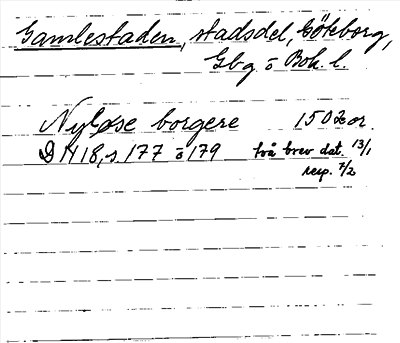 Gamlestaden, stadsdel, Göteborg,
Gbg o Boh. l.
Nyløse borgere 1502 or.
DN 18, s 177 o 179 två brev dat. 13/1
resp. 7/2